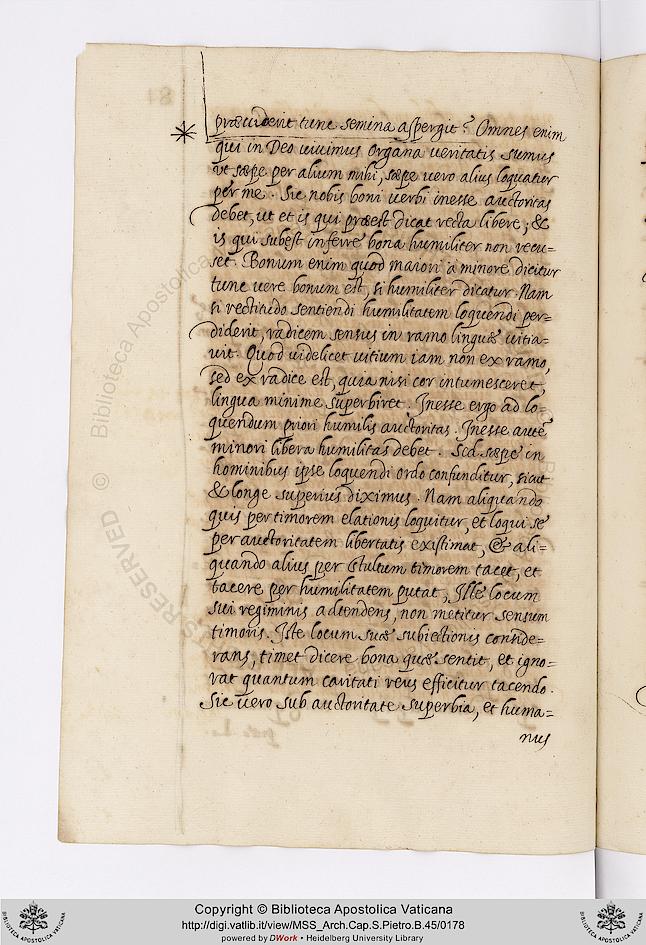 præviderit tunc semina aspergit? Omnes enim
qui in Deo vivimus organa veritatis sumus
vt sæpe per alium mihi, sæpe vero alius loquatur
per me. Sic nobis boni verbi inesse auctoritas
debet, ut et is qui præest dicat recta libere; &
is qui subest inferre bona humiliter non recu=
set. Bonum enim quod maiori a minore dicitur
tunc vere bonum est, si humiliter dicatur. Nam
si rectitudo sentiendi humilitatem loquendi per=
diderit, radicem sensus in ramo linguæ vitia=
vit. Quod videlicet vitium iam non ex ramo,
sed ex radice est, quia nisi cor intumesceret,
lingua minime superbiret. Inesse ergo ad lo=
quendum priori humilis auctoritas. Inesse autē
minori libera humilitas debet. Sed sæpe in
hominibus ipse loquendi ordo confunditur, sicut
& longe superius diximus. Nam aliquando
quis per timorem elationis loquitur, et loqui se
per auctoritatem libertatis existimat, & ali=
quando alius per stultum timorem tacet, et
tacere per humilitatem putat, Ille locum
sui regiminis adtendens, non metitur sensum
timoris. Iste locum suæ subiectionis conside=
rans, timet dicere bona quæ sentit, et igno=
rat quantum caritati reus efficitur tacendo.
Sic vero sub auctoritate superbia, et huma=
nus
Copyright © Biblioteca Apostolica Vaticana
http://digi.vatlib.it/view/MSS_Arch.Cap.S.Pietro.B.45/0178
powered by DWork • Heidelberg University Library